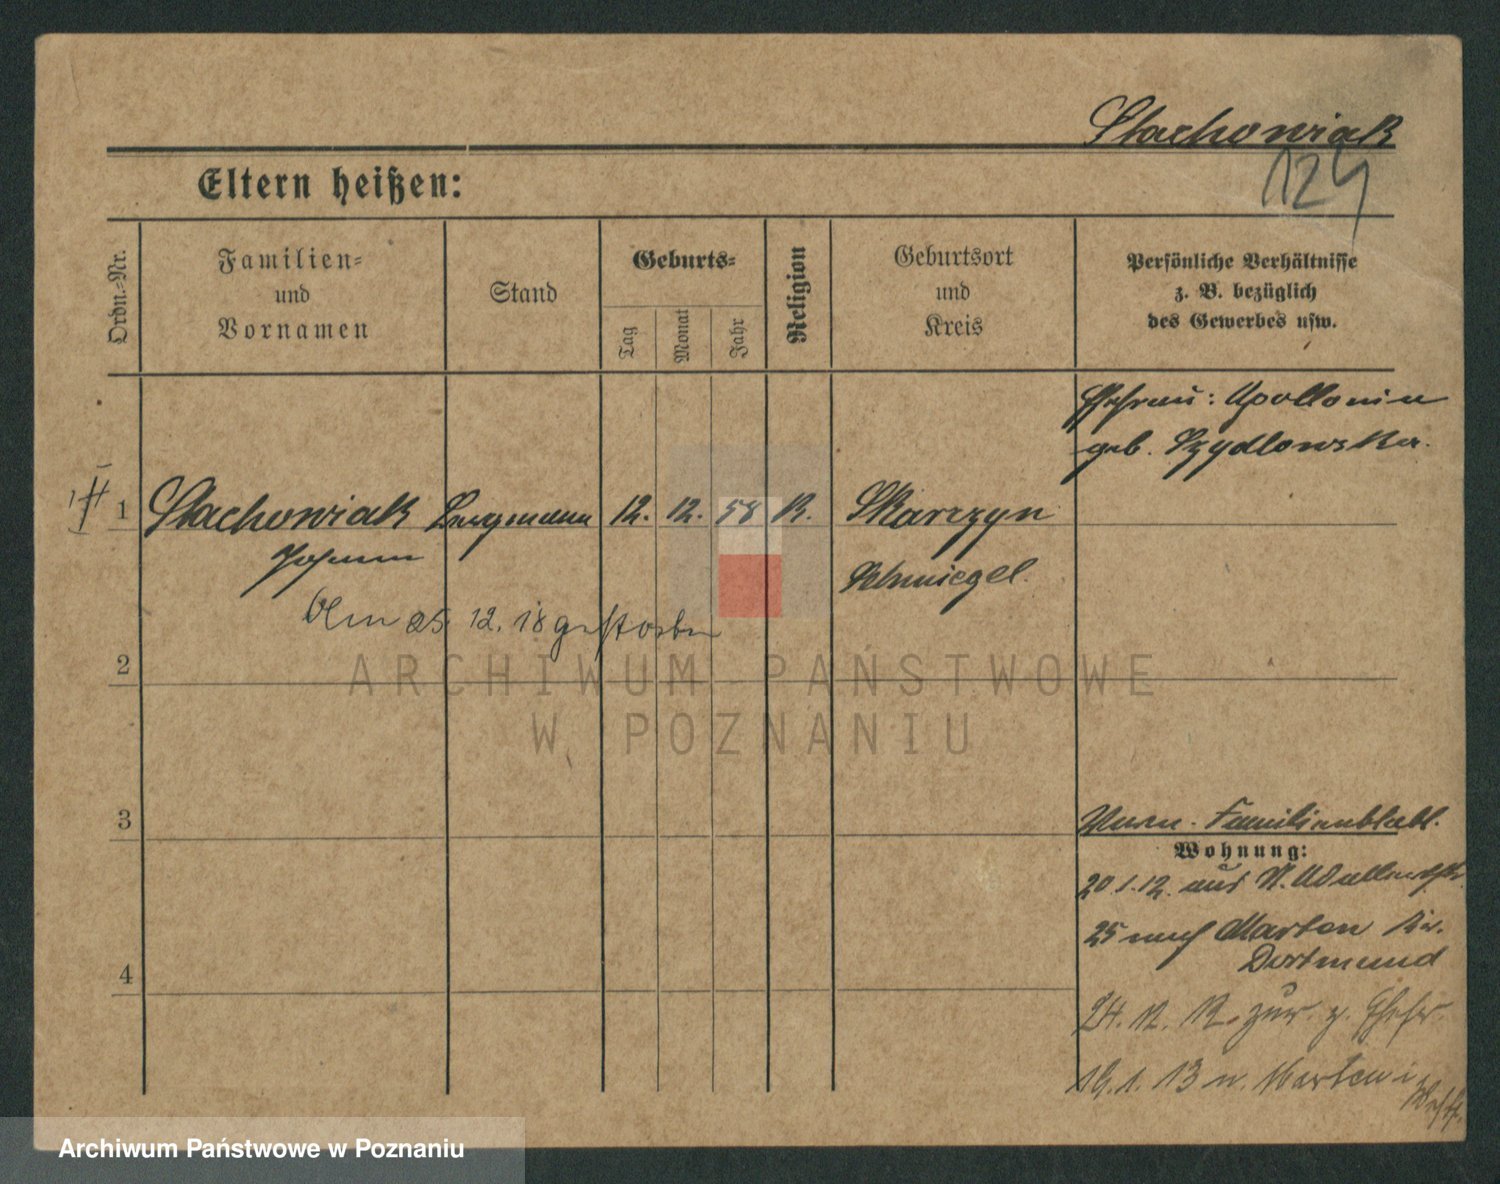 Stachowiak
124
Eltern heißen:
Ordn.-Nr.
Familien-
und
Vornamen
Stand
Geburts-
Tag
Monat
Jahr
Religion
Geburtsort
und
Kreis
Persönliche Verhältnisse
z. B. bezüglich
des Gewerbes usw.
Ehefrau: Apollonia
geb. Szydlowska.
1 Stachowiak Bergmann 12. 12. 58 K. Skarzyn
Johann
Schmiegel.
Am 25. 12. 18 gestorben
2
ARCHIWUM PAŃSTWOWE
W POZNANIU
3
Familienblatt.
Wohnung:
20.1.12. aus
25 nach Marten Kr.
Dortmund
4
24. 12. 12. zur. z. Ehefr.
19. 1. 13 n. Marten i
Westf.
Archiwum Państwowe w Poznaniu